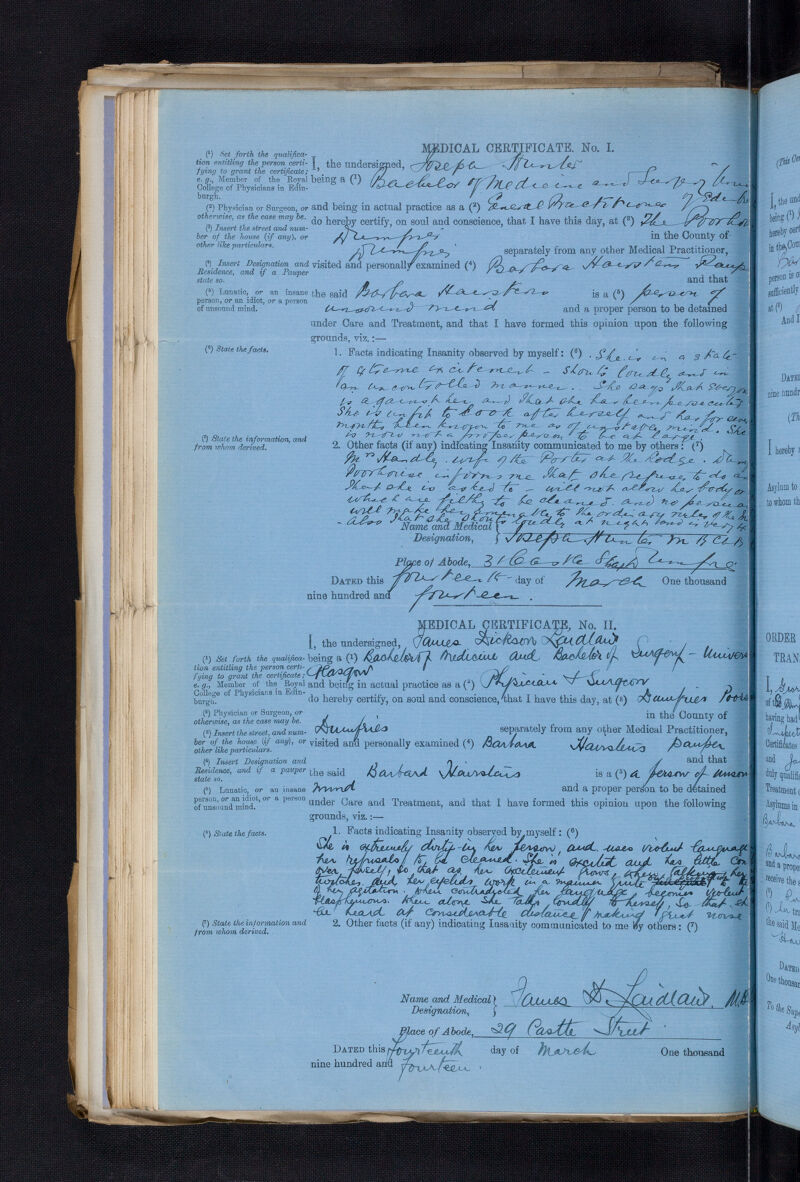 MEDICAL CERTIFICATE. No. I.
(¹) Set forth the qualifica-
tion entitling the person certi-
fying to grant the certificate;
e.g., Member of the Royal
College of Physicians in Edin-
burgh.
I, the undersigned, Joseph Hunter
being a (¹) Bachelor of Medicine and Surgery
(²) Physician or Surgeon, or
otherwise, as the case may be.
and being in actual practice as a (²) General Practitioner
do hereby certify, on soul and conscience, that I have this day, at (³) The
(³) Insert the street and num-
ber of the house (if any), or
other like particulars.
Dumfries in the County of
Dumfries separately from any other Medical Practitioner,
(⁴) Insert Designation and
Residence, and if a Pauper
state so.
visited and personally examined (⁴) Barbara Hairstens
and that
(⁵) Lunatic, or an insane
person, or an idiot, or a person
of unsound mind.
the said Barbara Hairstens is a (⁵) person of
unsound mind and a proper person to be detained
under Care and Treatment, and that I have formed this opinion upon the following
grounds, viz.:—
(⁶) State the facts.
1. Facts indicating Insanity observed by myself: (⁶) . She is in a state
of extreme excitement - shouts loudly and in
an uncontrolled manner. She says that
is against her, and that she has been persecuted
She is unfit to look after herself and has for
months been known to me as of unstable mind. She
is now not a proper person to be at large.
(⁷) State the information, and
from whom derived.
2. Other facts (if any) indicating Insanity communicated to me by others: (⁷)
Mrs Handly, wife of the Porter at the Lodge.
Poorhouse informs me that she refuses to do
that she is asked to - will not allow her body
which are filthy to be cleaned. and no
will make her amenable to the ordinary rules of the
- also that she shouts loudly at night and is very
Name and Medical
Designation,
Joseph Hunter M B Ch B
Place of Abode, 31 Castle
DATED this fourteenth day of March One thousand
nine hundred and fourteen.
MEDICAL CERTIFICATE, No. II.
I, the undersigned, James Dickson Laidlaw
(¹) Set forth the qualifica-
tion entitling the person certi-
fying to grant the certificate;
e.g., Member of the Royal
College of Physicians in Edin-
burgh.
being a (¹) Bachelor of Medicine and Bachelor of Surgery -
Glasgow
and being in actual practice as a (²) Physician & Surgeon
(²) Physician or Surgeon, or
otherwise, as the case may be.
do hereby certify, on soul and conscience, that I have this day, at (³) Dumfries
in the County of
(³) Insert the street, and num-
ber of the house (if any), or
other like particulars.
Dumfries separately from any other Medical Practitioner,
visited and personally examined (⁴) Barbara Hairstens Pauper
and that
(⁴) Insert Designation and
Residence, and if a pauper
state so.
the said Barbara Hairstens is a (⁵) a person of
(⁵) Lunatic, or an insane
person, or an idiot, or a person
of unsound mind.
mind and a proper person to be detained
under Care and Treatment, and that I have formed this opinion upon the following
grounds, viz.:—
(⁶) State the facts.
1. Facts indicating Insanity observed by myself: (⁶)
She is extremely dirty in her person, and uses violent language
her refusals to be cleaned. She is excited and has little
over herself, so that as her excitement grows, when talking her
twitches and her eyelids work in a manner quite
of her agitation. When contradicted her language becomes violent
blasphemous. When alone she talks loudly to herself, so that
be heard at considerable distance making great noise
(⁷) State the information and
from whom derived.
2. Other facts (if any) indicating Insanity communicated to me by others: (⁷)
Name and Medical
Designation,
James D. Laidlaw.
Place of Abode, 29 Castle Street
DATED this fourteenth day of March One thousand
nine hundred and fourteen.
ORDER
TRAN